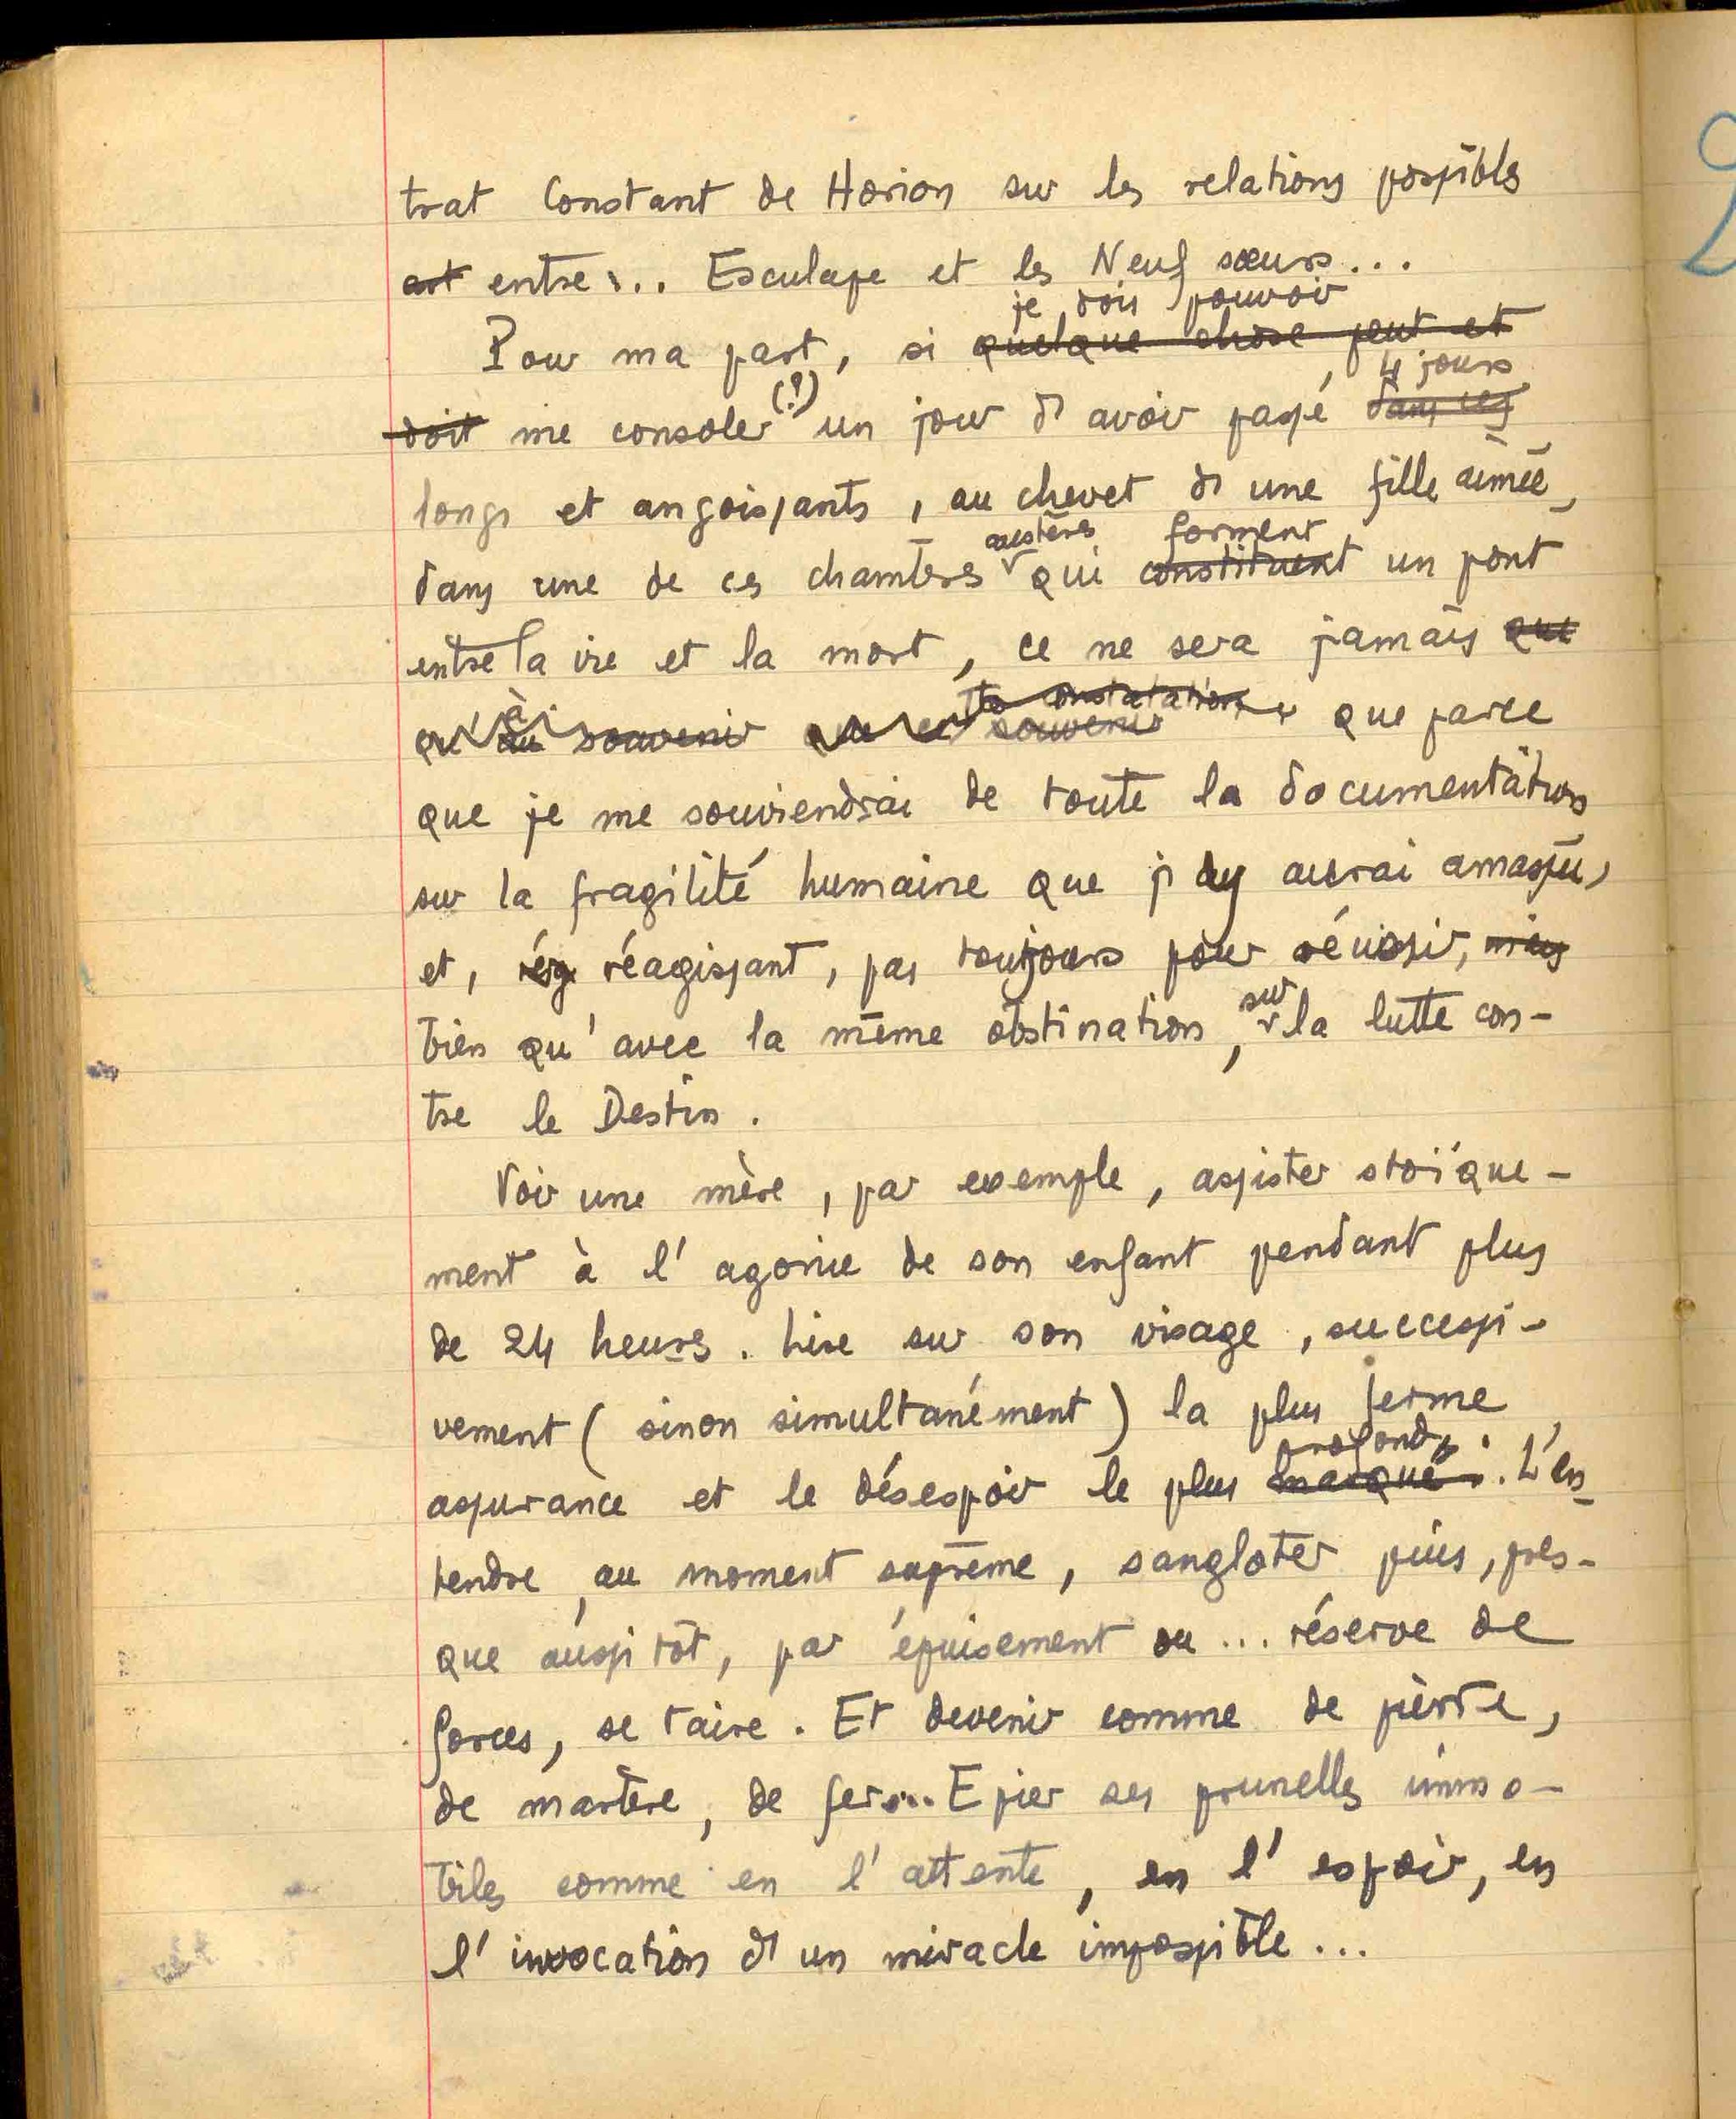 trat Constant de Horion sur les relations possibles
est entre... Esculape et les Neuf sœurs...
je dois pouvoir
Pour ma part, si quelque chose peut et
4 jours
doit me consoler (?) un jour d'avoir passé dans ces
longs et angoissants, au chevet d'une fille aimée,
austères forment
dans une de ces chambres qui constituent un pont
entre la vie et la mort, ce ne sera jamais que
à constatation
qu' au souvenir que souvenir que parce
que je me souviendrai de toute la documentation
sur la fragilité humaine que j'ay aurai amassée,
et, rég réagissant, pas toujours pour réussir, mais
sur
bien qu'avec la même obstination, la lutte con-
tre le Destin.
Voir une mère, par exemple, assister stoïque-
ment à l'agonie de son enfant pendant plus
de 24 heures. Lire sur son visage, successi-
vement (sinon simultanément) la plus ferme
profond.
assurance et le désespoir le plus marqué. L'en-
tendre, au moment suprême, sangloter puis, pres-
que aussitôt, par épuisement ou... réserve de
forces, se taire. Et devenir comme de pierre,
de marbre, de fer... Epier ses prunelles immo-
biles comme en l'attente, en l'espoir, en
l'invocation d'un miracle impossible...